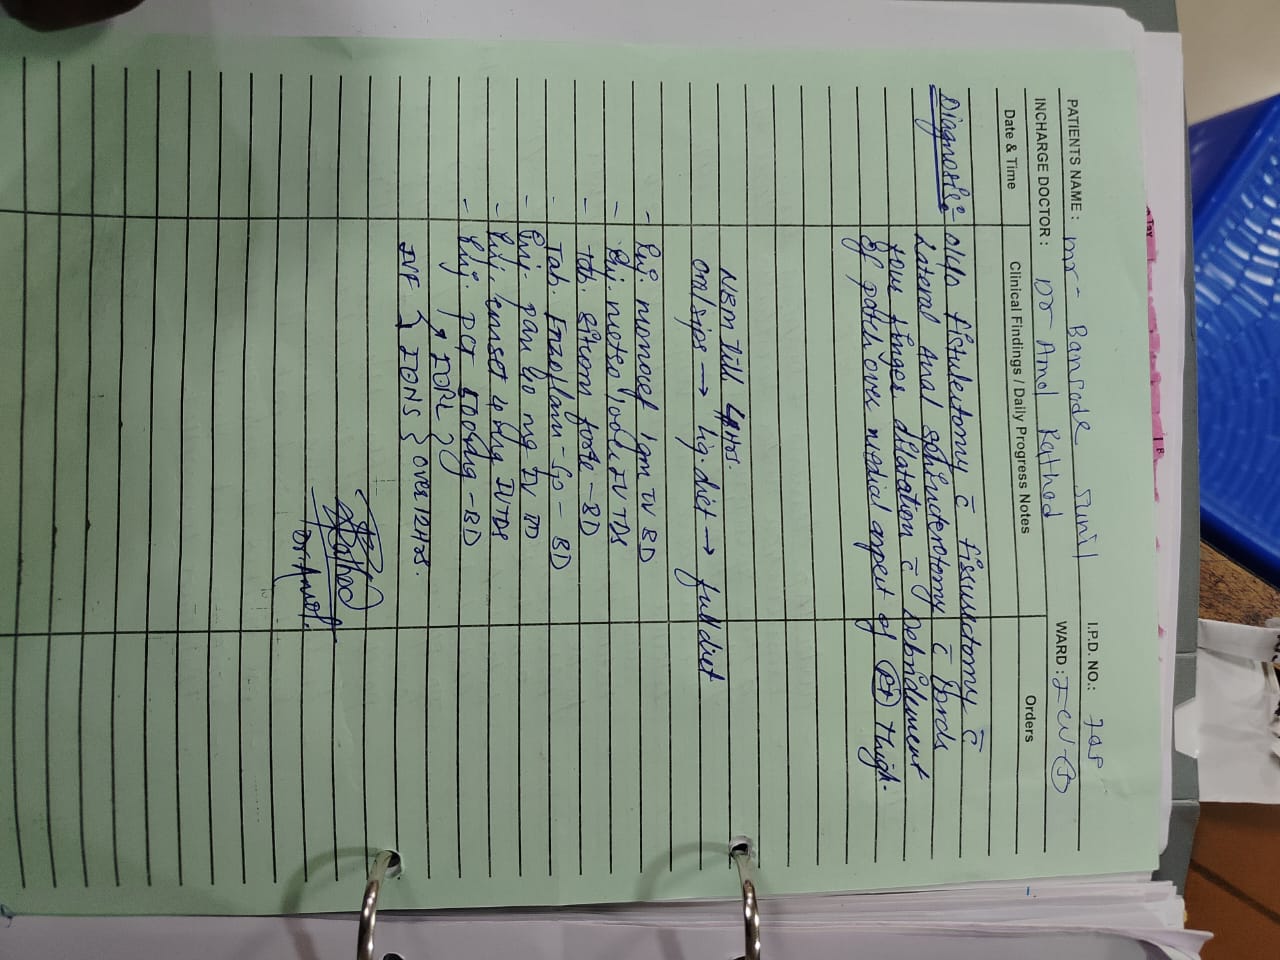 PATIENTS NAME : Mr- Bansode Sunil I.P.D. NO.:
INCHARGE DOCTOR : Dr Amol Rathod WARD : ICU-
Date & Time Clinical Findings / Daily Progress Notes Orders
Diagnosis:- fistulectomy c̄ fissurectomy c̄
Lateral Anal sphincterotomy c̄ Lords
four finger dilatation c̄ Debridement
of patch over medial aspect of (Rt) thigh.
NBM till 4 Hrs.
oral sips → liq diet → full diet
- Inj. numocef 1gm IV BD
- Inj. metro 100cc IV TDS
- Tab. fort - BD
- Tab. Enzoflam - SP - BD
- Inj. pan 40 mg IV
- Inj. emset 4mg IV TDS
- Inj. PCT - BD
IVF } over 12Hrs.
Rathod
Dr. Amol.